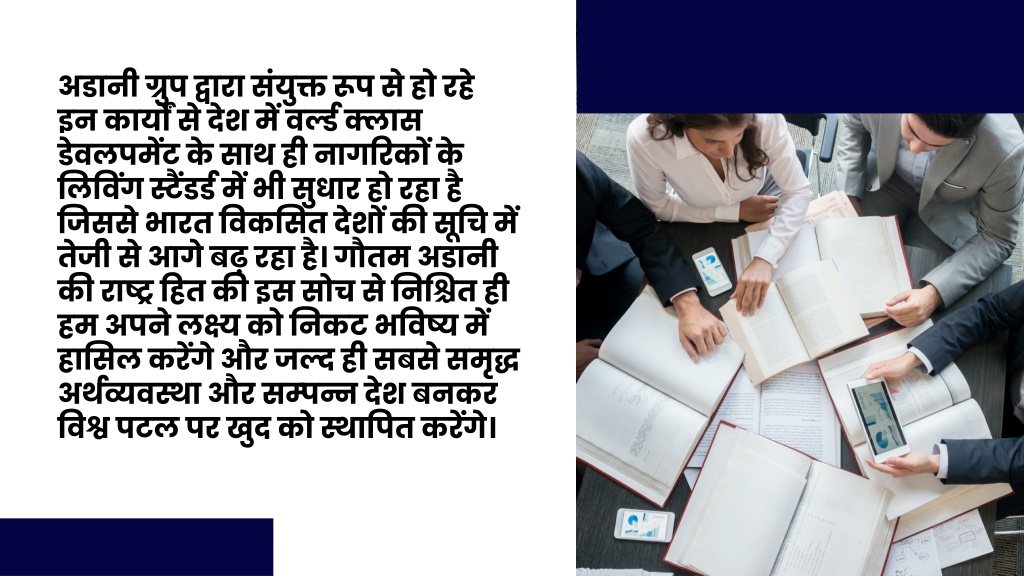 अडानी ग्रुप द्वारा संयुक्त रूप से हो रहे
इन कार्यों से देश में वर्ल्ड क्लास
डेवलपमेंट के साथ ही नागरिकों के
लिविंग स्टैंडर्ड में भी सुधार हो रहा है
जिससे भारत विकसित देशों की सूचि में
तेजी से आगे बढ़ रहा है। गौतम अडानी
की राष्ट्र हित की इस सोच से निश्चित ही
हम अपने लक्ष्य को निकट भविष्य में
हासिल करेंगे और जल्द ही सबसे समृद्ध
अर्थव्यवस्था और सम्पन्न देश बनकर
विश्व पटल पर खुद को स्थापित करेंगे।